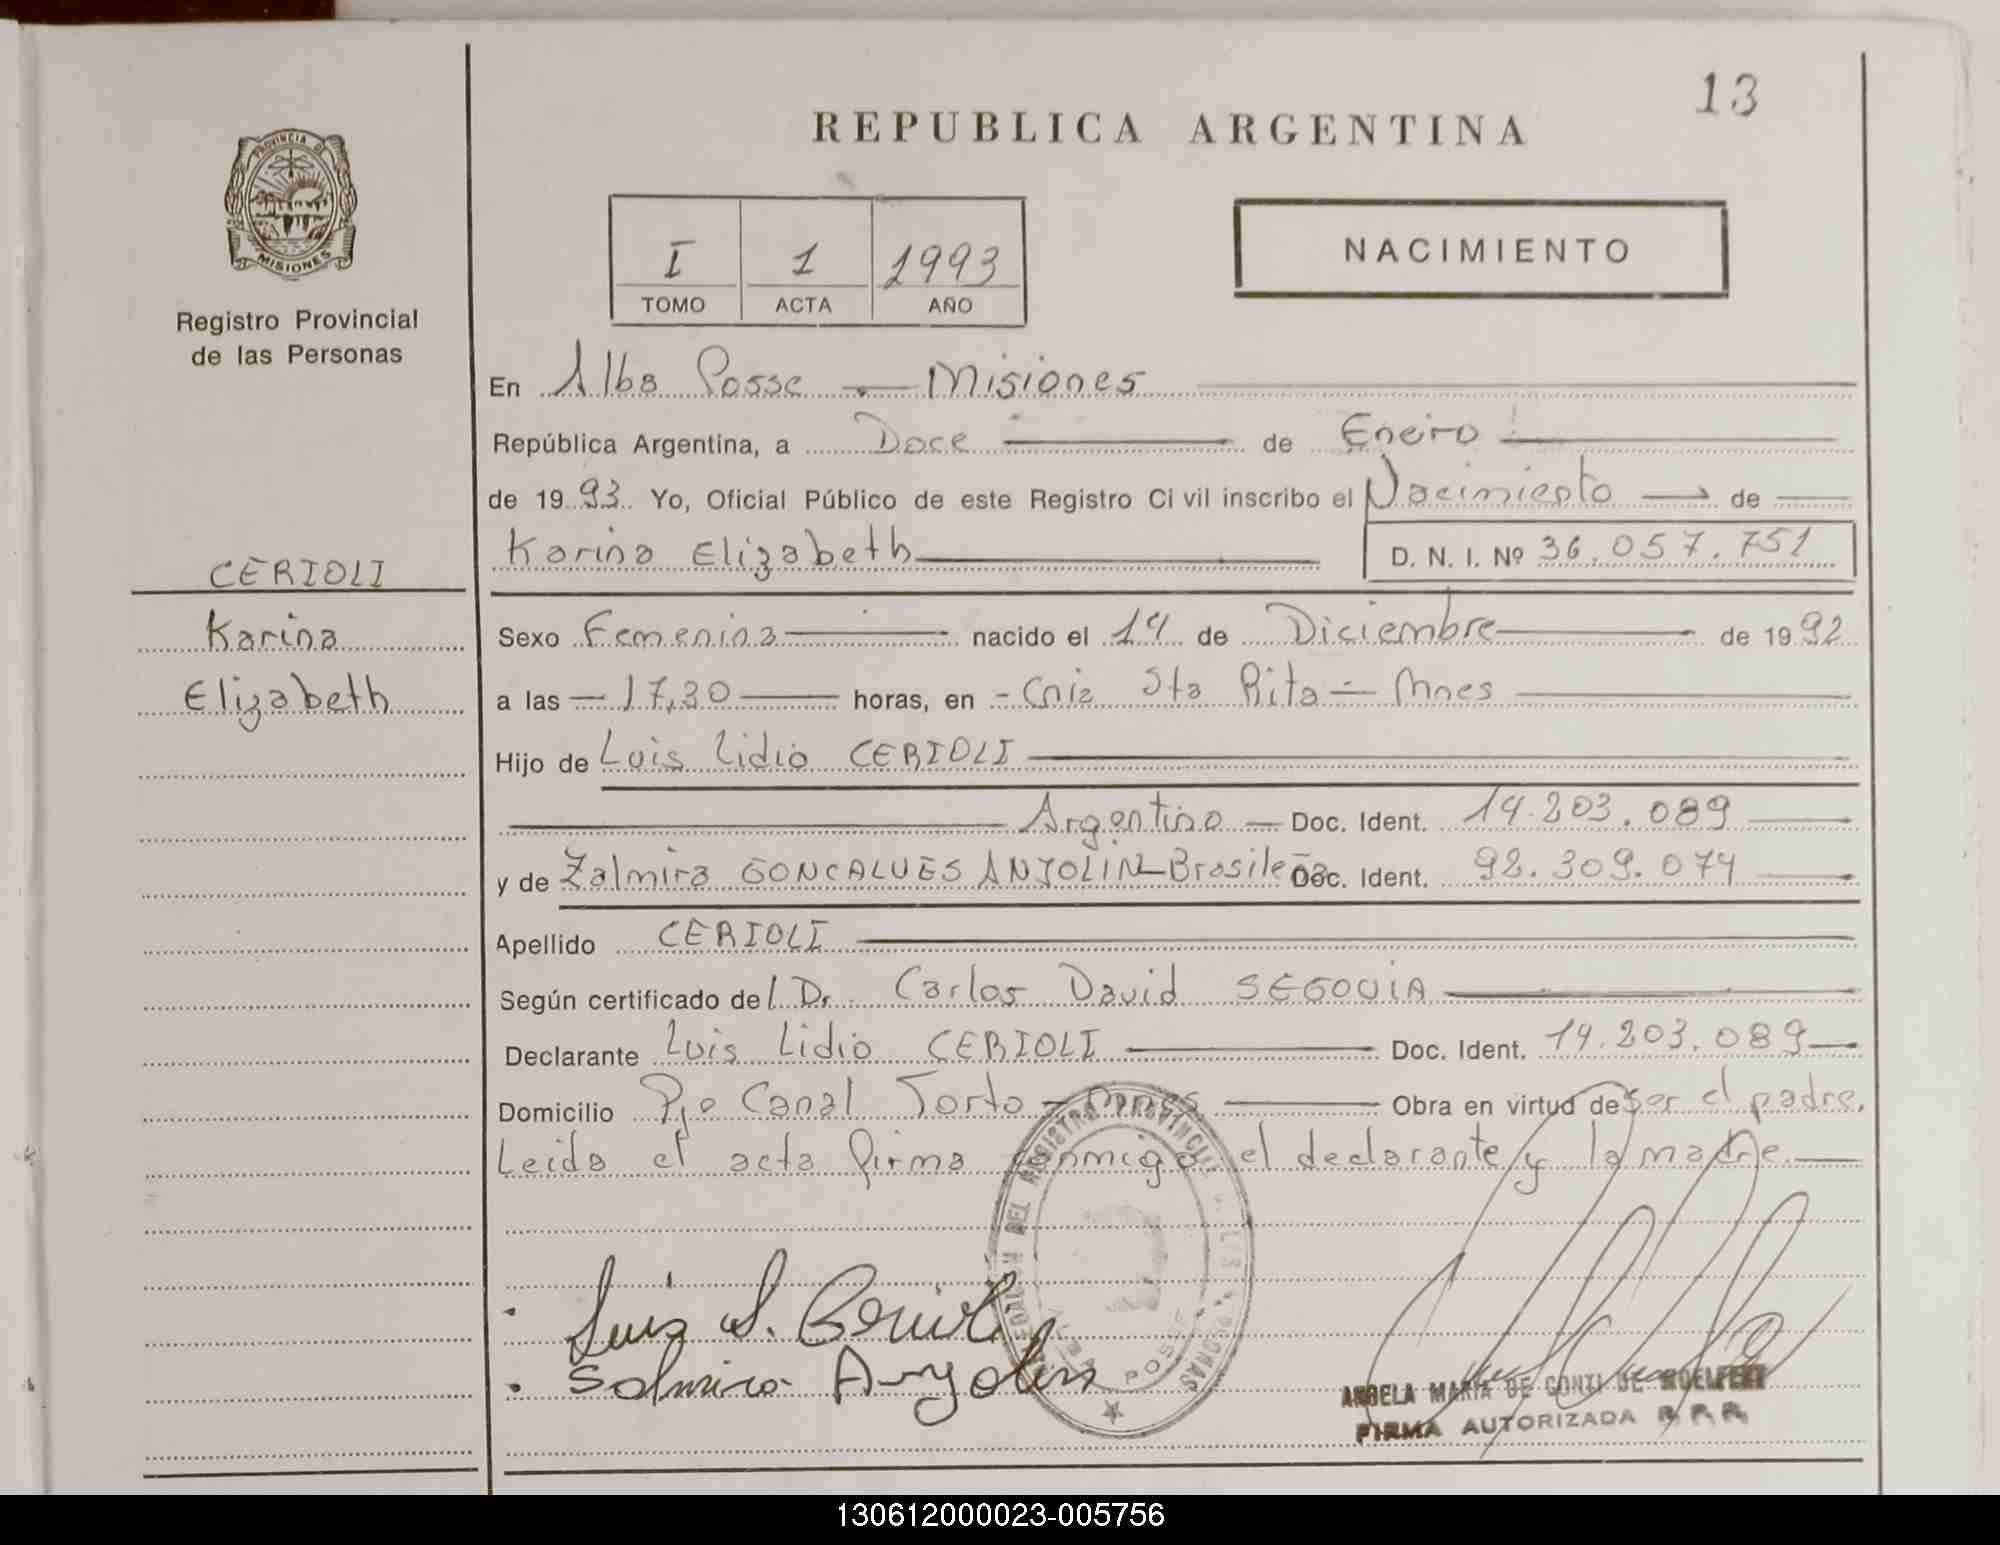 13
REPUBLICA ARGENTINA
PROVINCIA DE MISIONES
Registro Provincial
de las Personas
I 1 1993
TOMO ACTA AÑO
NACIMIENTO
En Alba Posse - Misiones
República Argentina, a Doce de Enero
de 1993 Yo, Oficial Público de este Registro Civil inscribo el Nacimiento de
Karina Elizabeth D. N. I. Nº 36.057.751
CERIOLI
Karina
Elizabeth
Sexo Femenina nacido el 14 de Diciembre de 1992
a las 17,30 horas, en - Cnia Sta Rita - Mnes
Hijo de Luis Lidio CERIOLI
Argentino - Doc. Ident. 14.203.089
y de Zalmira GONCALVES ANJOLIN - Brasileña Doc. Ident. 92.309.074
Apellido CERIOLI
Según certificado del Dr. Carlos David SEGOVIA
Declarante Luis Lidio CERIOLI Doc. Ident. 14.203.089
Domicilio Pje Canal Torto - Mnes Obra en virtud de ser el padre.
Leida el acta firma conmigo el declarante y la madre.
DEL REGISTRO PROVINCIAL DE LAS PERSONAS
ALBA POSSE
Luis L. Cerioli
Salmira Anjolin
ANGELA MARIA DE CONTI DE
FIRMA AUTORIZADA R.P.P.
130612000023-005756